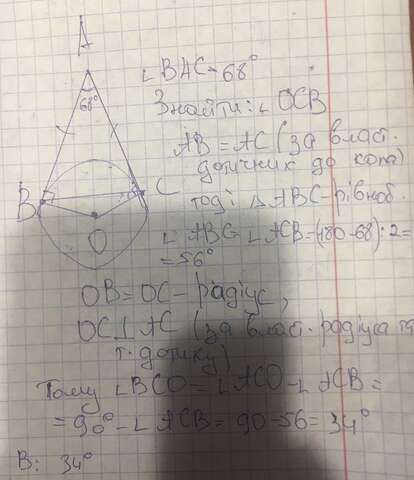 A
68°
B
C
O
∠BAC = 68°
Знайти: ∠OCB
AB = AC (за власт.
дотичних до кола)
тоді △ABC – рівноб.
∠ABC ∠ACB = (180-68):2=
= 56°
OB = OC – радіус,
OC ⊥ AC (за власт. радіуса та
т. дотику)
Тому ∠BCO = ∠ACO - ∠ACB =
= 90° - ∠ACB = 90 - 56 = 34°
В: 34°